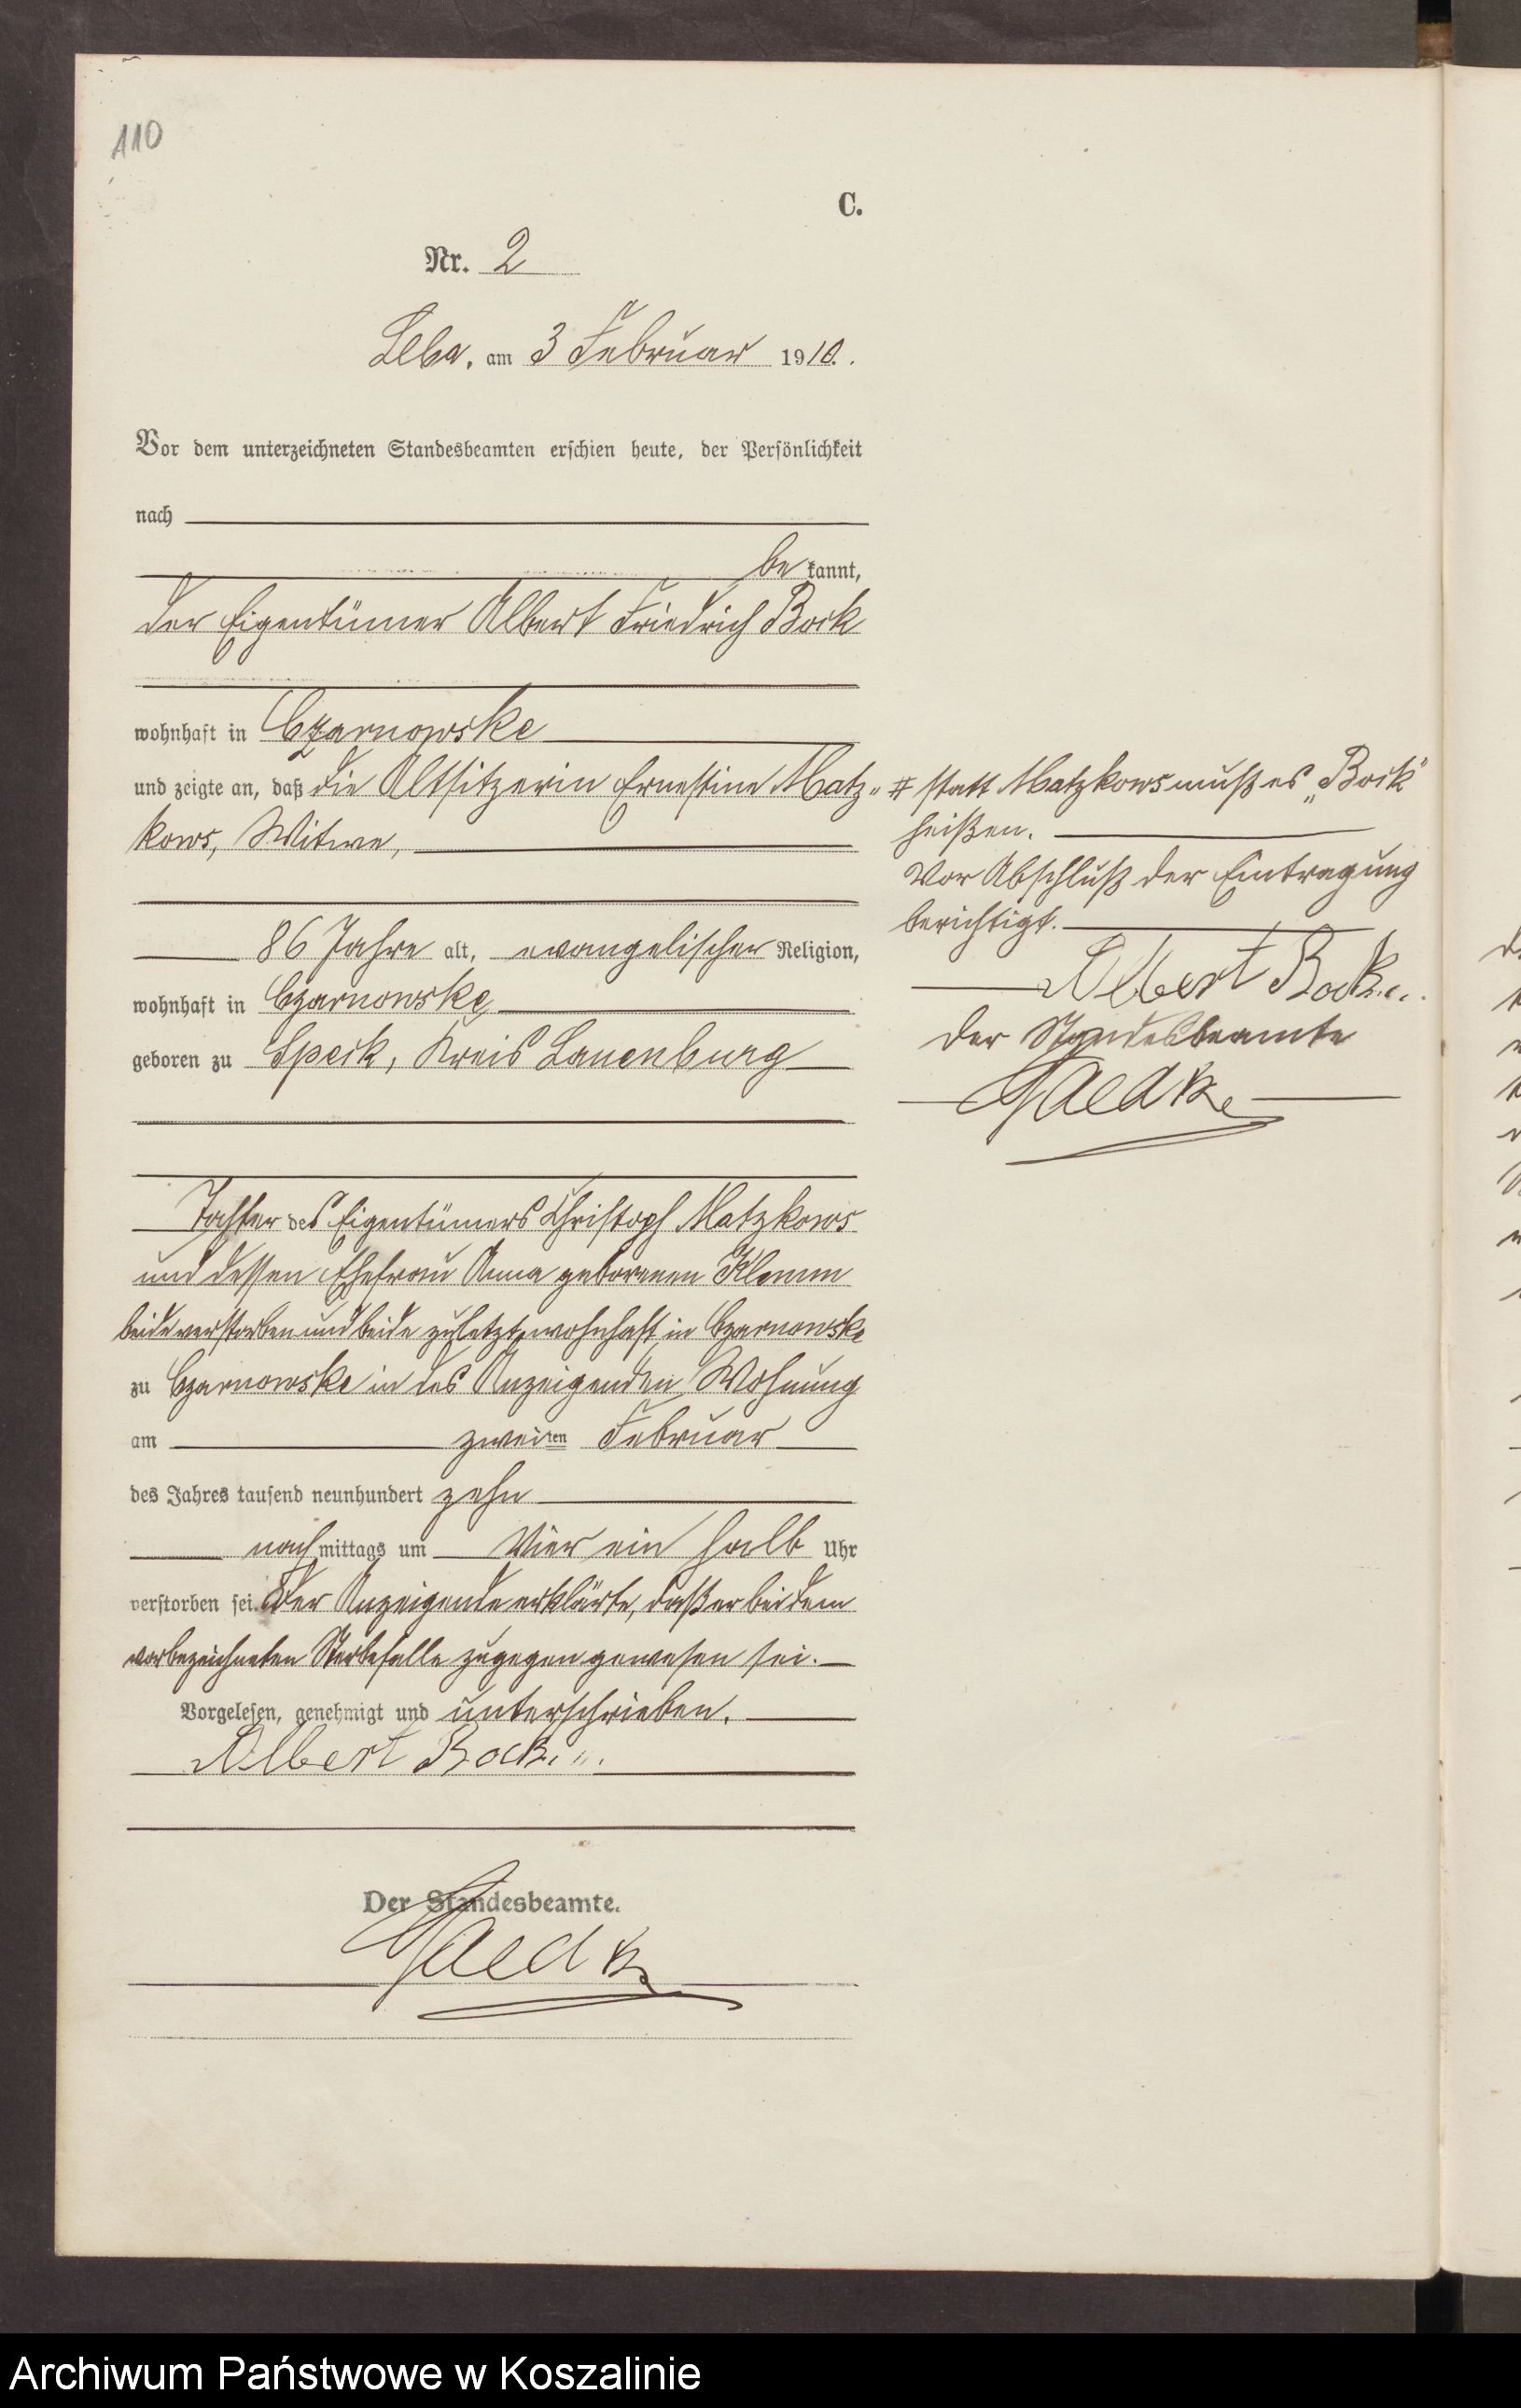 110
C.
Nr. 2
Leba, am 3 Februar 1910.
Vor dem unterzeichneten Standesbeamten erschien heute, der Persönlichkeit
nach
be kannt,
der Eigentümer Albert Friedrich Bock
wohnhaft in Czarnowske
und zeigte an, daß die Altsitzerin Ernestine Matz- #
kows, Witwe,
86 Jahre alt, evangelischer Religion,
wohnhaft in Czarnowske
geboren zu Speck, Kreis Lauenburg
Tochter des Eigentümers Christoph Matzkows
und dessen Ehefrau Anna geborenen Klemm
beide verstorben und beide zuletzt wohnhaft in Czarnowske
zu Czarnowske in des Anzeigenden Wohnung
am zweiten Februar
des Jahres tausend neunhundert zehn
nachmittags um Vier ein halb Uhr
verstorben sei. Der Anzeigende erklärte, daß er bei dem
vorbezeichneten Sterbefalle zugegen gewesen sei.
Vorgelesen, genehmigt und unterschrieben.
Albert Bock
Der Standesbeamte.
Gaedk
# statt Matzkows muß es „Bock"
heißen.
Vor Abschluß der Eintragung
berichtigt.
Albert Bock
Der Standesbeamte
Gaedke
Archiwum Państwowe w Koszalinie